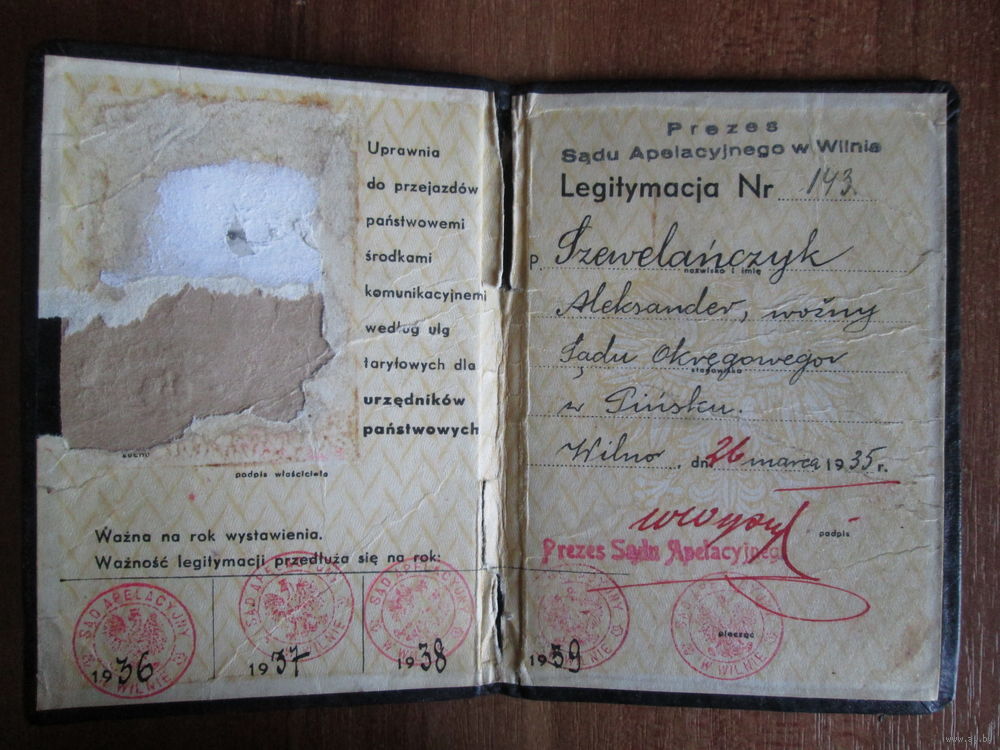 Uprawnia
do przejazdów
państwowemi
środkami
komunikacyjnemi
według ulg
taryfowych dla
urzędników
państwowych
podpis właściciela
Ważna na rok wystawienia.
Ważność legitymacji przedłuża się na rok:
SĄD APELACYJNY W WILNIE
1936
SĄD APELACYJNY W WILNIE
1937
SĄD APELACYJNY W WILNIE
1938
Prezes
Sądu Apelacyjnego w Wilnie
Legitymacja Nr 143
p. Szewelańczyk
nazwisko i imię
Aleksander, woźny
Sądu Okręgowego
stanowisko
w Pińsku.
Wilno, dn. 26 marca 1935 r.
podpis
Prezes Sądu Apelacyjnego
1939
pieczęć
W WILNIE
www.ay.by